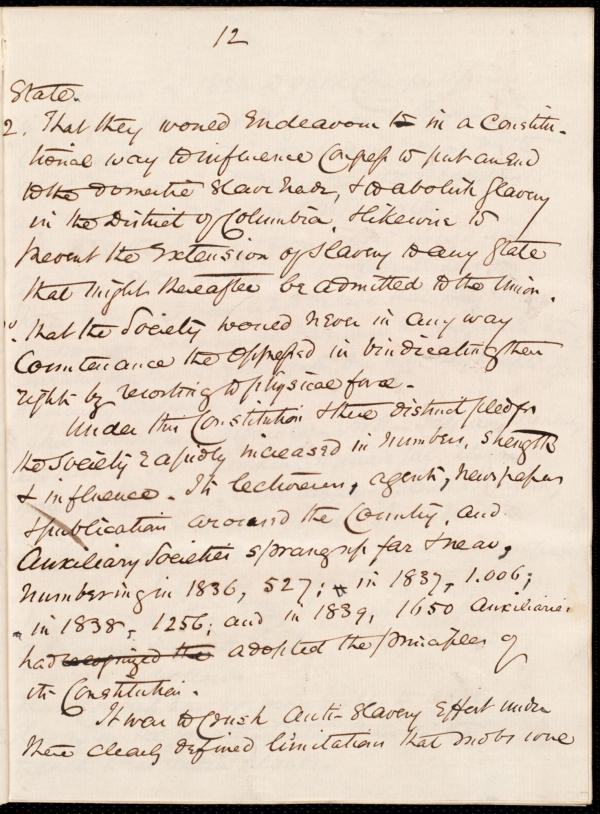 12
State.
2. That they would Endeavour to in a Constitu-
tional way to influence Congress to put an End
to the Domestic Slave trade, & to abolish Slavery
in the District of Columbia, & likewise to
prevent the Extension of Slavery to any State
that might thereafter be admitted to the Union.
That the Society would never in any way
Countenance the oppressed in vindicating their
rights by resorting to physical force.
Under this Constitution & these distinct pledges
the Society rapidly increased in numbers, strength
& influence. Its lecturers, agents, newspapers
& publications around the Country, and
Auxiliary Societies sprang up far & near,
numbering in 1836, 527; in 1837, 1.006;
in 1838, 1256; and in 1839, 1650 Auxiliaries
had recognized the adopted the principles of
its Constitution.
It was to Crush Anti-Slavery Effort under
these clearly defined limitations that mobs were